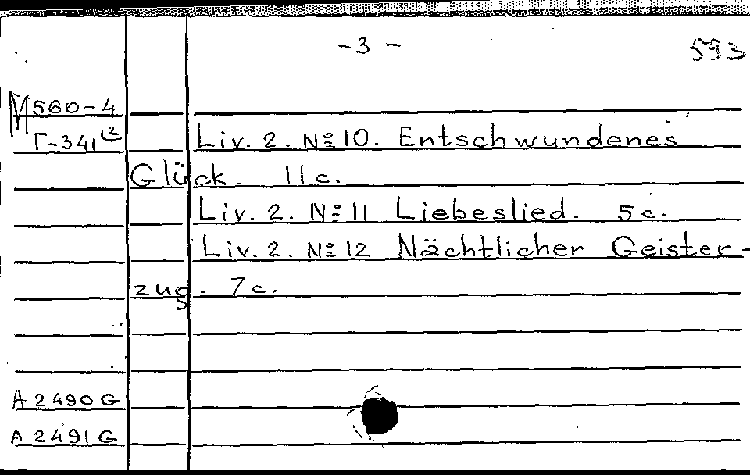 - 3 -
593
М 560-4
Г-341²
Liv. 2. № 10. Entschwundenes
Glück. 11 c.
Liv. 2. № 11 Liebeslied. 5 c.
Liv. 2. № 12 Nächtlicher Geister-
zug. 7 c.
A 2490 G
A 2491 G